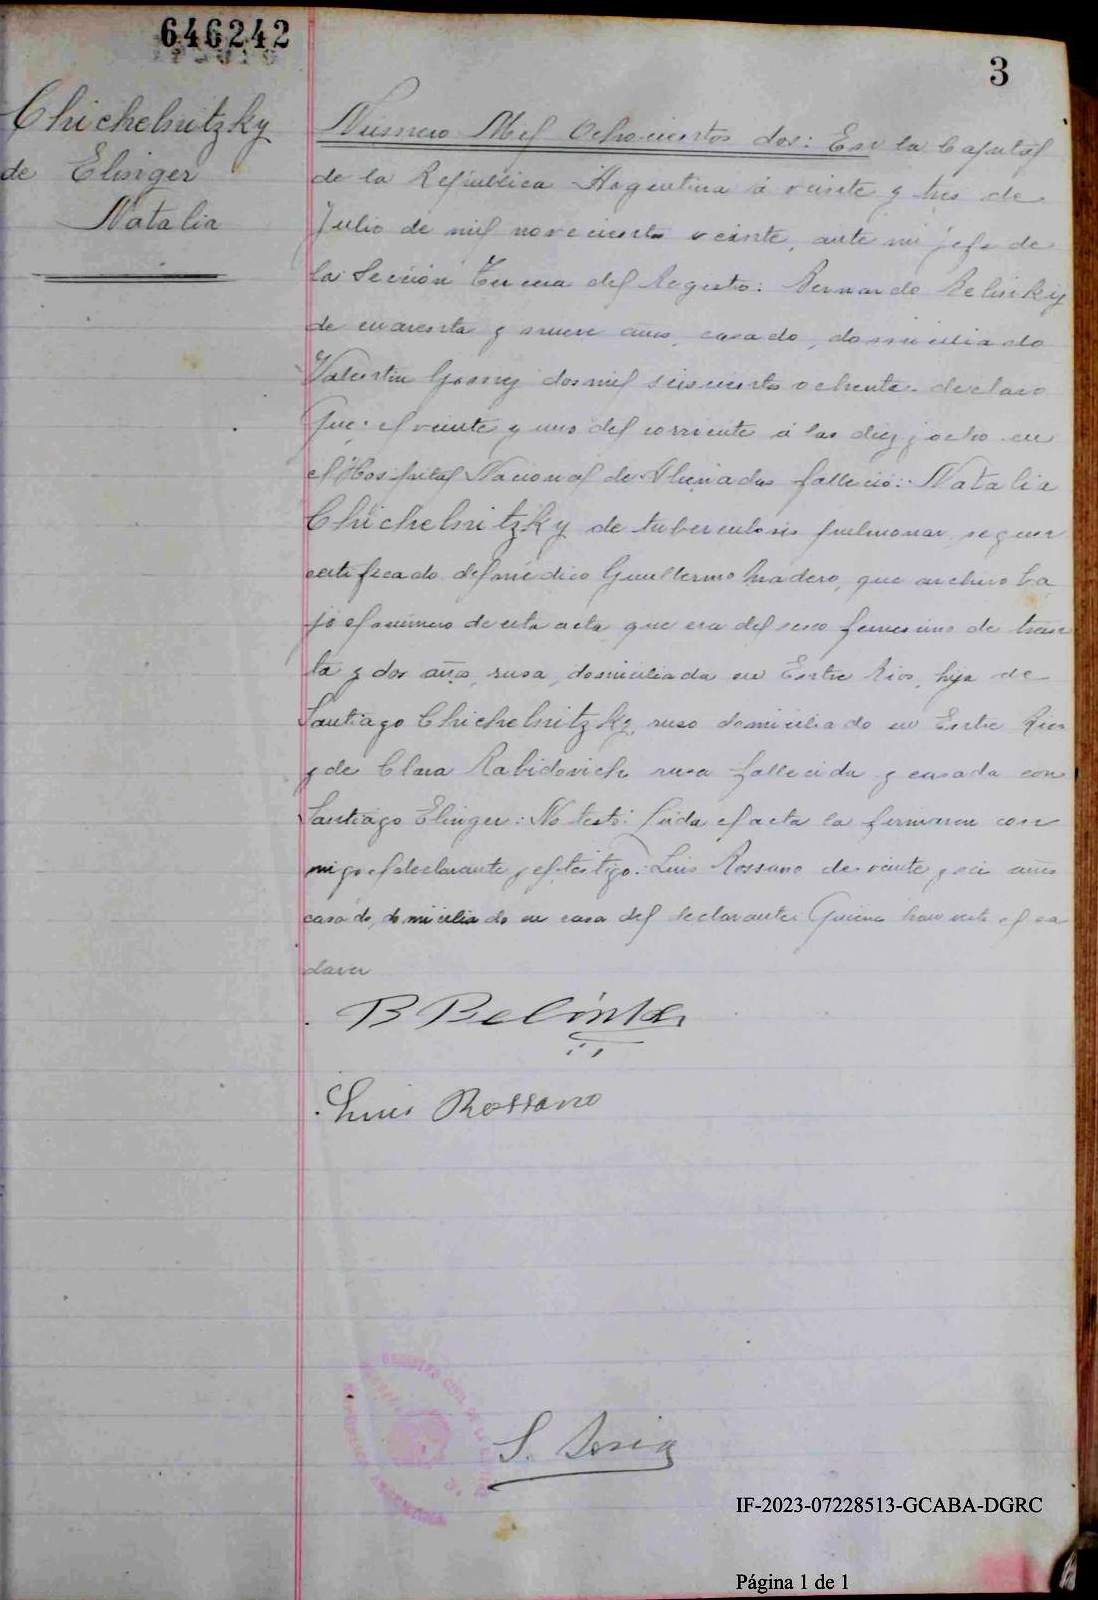 646242
3
Chichelnitzky
de Elinger
Natalia
Número Mil Ochocientos dos: En la Capital
de la República Argentina á veinte y tres de
Julio de mil novecientos veinte, ante mi jefe de
la Sección Tercera del Registro: Bernardo Belinky
de cuarenta y nueve años, casado, domiciliado
Valentin Gomez dos mil seiscientos ochenta declaro
Que: el veinte y uno del corriente á las diez y ocho en
el Hospital Nacional de Alienadas falleció: Natalia
Chichelnitzky de tuberculosis pulmonar, segun
certificado del médico Guillermo Madero, que archivo ba
jo el número de esta acta, que era del sexo femenino de trein
ta y dos años, rusa, domiciliada en Entre Rios, hija de
Santiago Chichelnitzky, ruso domiciliado en Entre Rios
y de Clara Rabidovich rusa fallecida y casada con
Santiago Elinger: No testó: Leida el acta la firmaron con
migo el declarante y el testigo: Luis Rossano de veinte y seis años
casado, domiciliado en casa del declarante: Quienes han visto el ca
daver
B Belinky
Luis Rossano
S. Soria
IF-2023-07228513-GCABA-DGRC
Página 1 de 1